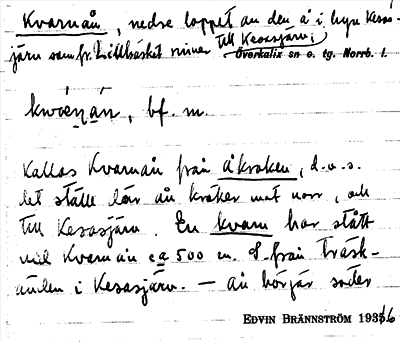 Kvarnån, nedre loppet av den å i byn Kesas-
järv som fr. Lillträsket rinner till Kesasjärvi
Överkalix sn o. tg. Norrb. l.
bf. m.
Kallas Kvarnån från åkroken, d.v.s.
det ställe där ån kröker mot norr, och
till Kesasjärv. En kvarn har stått
vid Kvarnån ca 500 m. S. från träsk-
änden i Kesasjärv. — ån börjar söder
EDVIN BRÄNNSTRÖM 1936